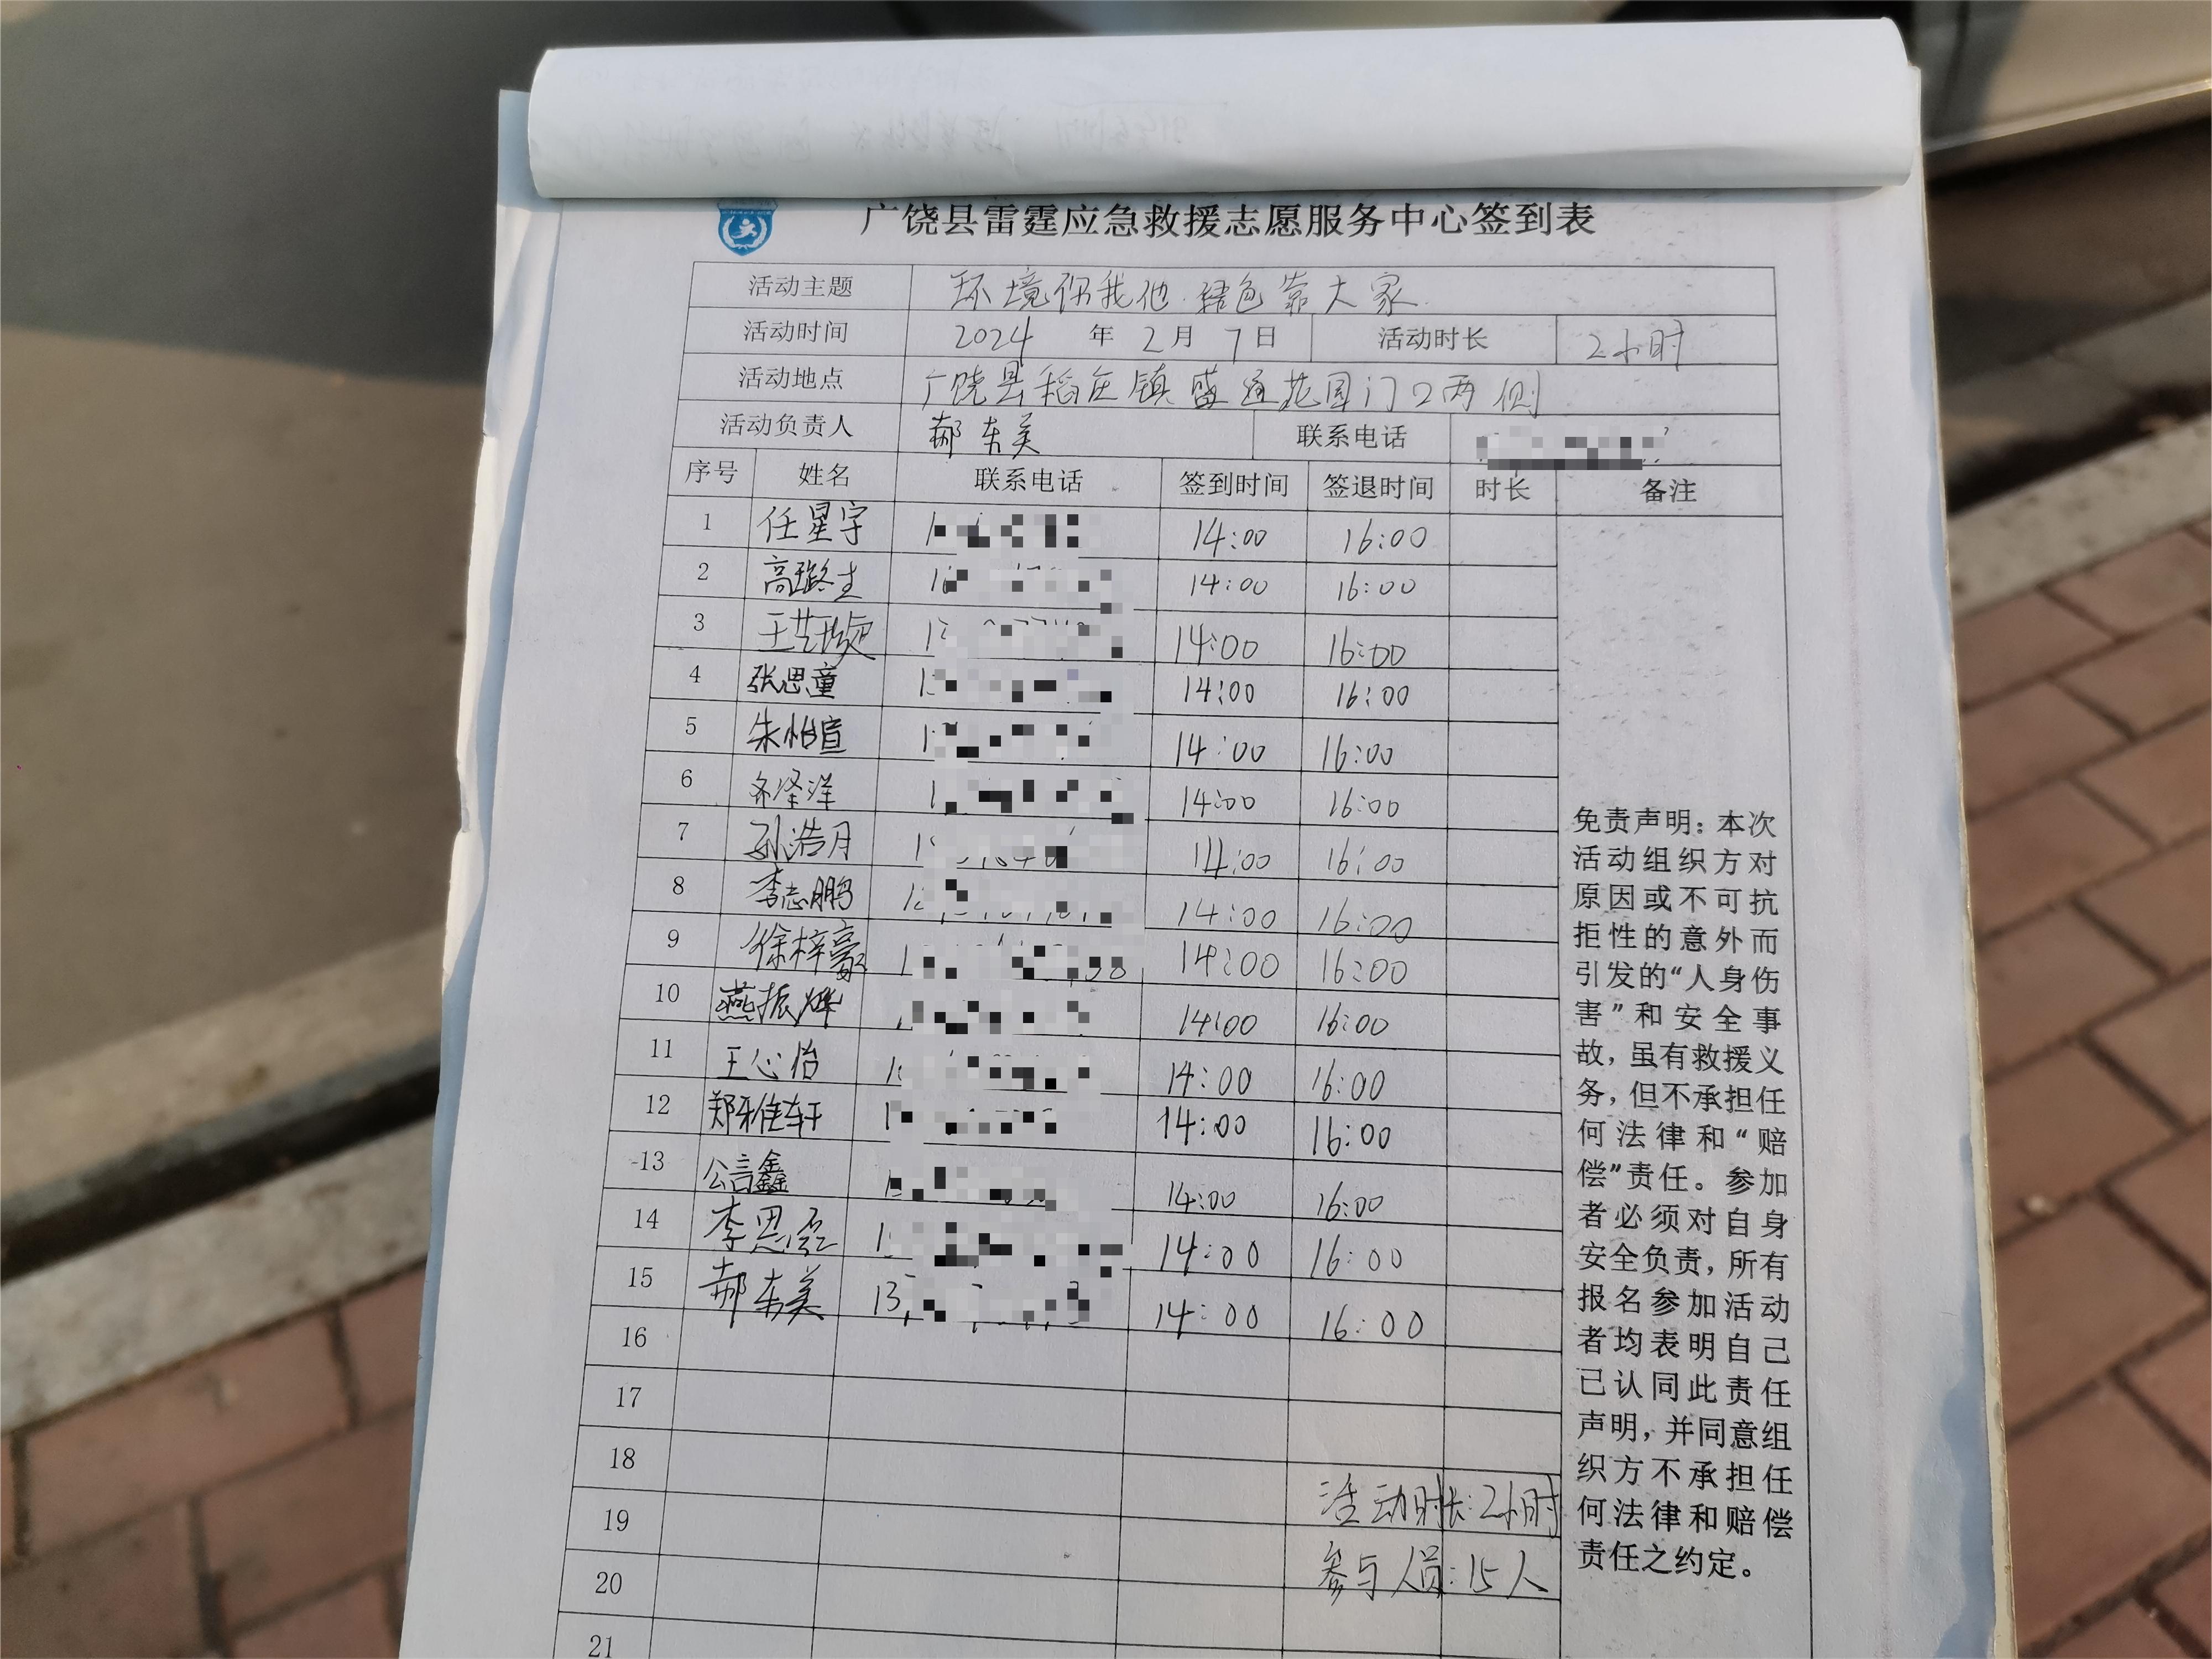 广饶县雷霆应急救援志愿服务中心签到表
活动主题 环境你我他 绿色靠大家
活动时间 2024 年 2 月 7 日 活动时长 2小时
活动地点 广饶县稻庄镇盛通花园门口两侧
活动负责人 郝东美 联系电话
序号 姓名 联系电话 签到时间 签退时间 时长 备注
1 任星宇 14:00 16:00
2 高璐生 14:00 16:00
3 14:00 16:00
4 张思童 14:00 16:00
5 朱怡萱 14:00 16:00
6 齐泽洋 14:00 16:00
7 孙浩月 14:00 16:00
8 李志鹏 14:00 16:00
9 徐梓豪 14:00 16:00
10 燕振烨 14:00 16:00
11 王心怡 14:00 16:00
12 郑雅轩 14:00 16:00
13 公言鑫 14:00 16:00
14 李思 14:00 16:00
15 郝东美 13 14:00 16:00
16
17
18
19 活动时长:2小时
20 参与人员:15人
21
免责声明：本次
活动组织方对
原因或不可抗
拒性的意外而
引发的“人身伤
害”和安全事
故，虽有救援义
务，但不承担任
何法律和“赔
偿”责任。参加
者必须对自身
安全负责，所有
报名参加活动
者均表明自己
已认同此责任
声明，并同意组
织方不承担任
何法律和赔偿
责任之约定。